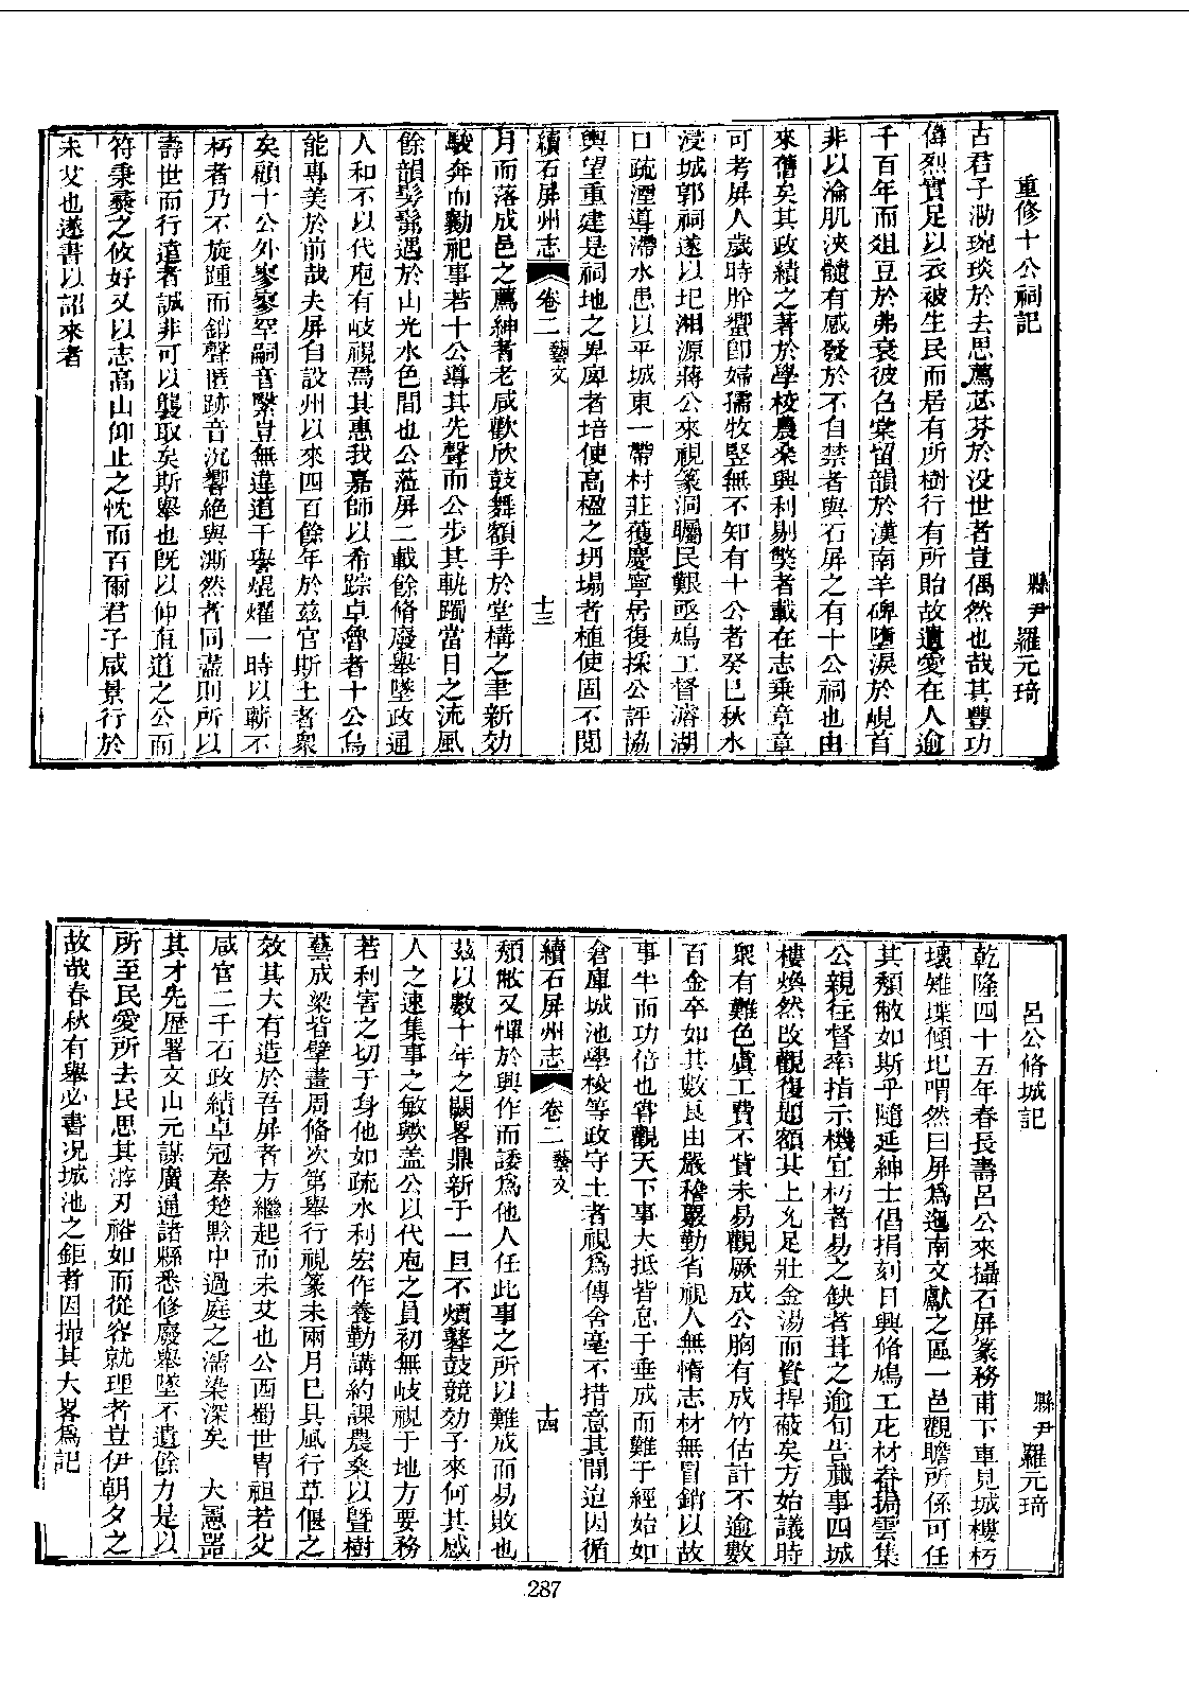 重修十公祠記 縣尹羅元琦
古君子泐琬琰於去思薦苾芬於没世者豈偶然也哉其豐功
偉烈實足以衣被生民而居有所樹行有所貽故遺愛在人逾
千百年而俎豆於弗衰彼召棠留韻於漢南羊碑墮淚於峴首
非以淪肌浹髓有感發於不自禁者與石屏之有十公祠也由
來舊矣其政績之著於學校農桑興利剔獘者載在志乘章章
可考屏人歲時肸蠁卽婦孺牧竪無不知有十公者癸巳秋水
浸城郭祠遂以圮湘源蔣公來視篆洞矚民艱亟鳩工督濬湖
口疏湮導滯水患以平城東一帶村莊獲慶寧居復採公評協
輿望重建是祠地之卑庳者培使高楹之坍塌者植使固不閱
續石屏州志 卷二 藝文 十三
月而落成邑之薦紳耆老咸歡欣鼓舞額手於堂構之聿新効
駿奔而勷祀事若十公導其先聲而公步其軌躅當日之流風
餘韻髣髴遇於山光水色間也公蒞屏二載餘脩廢舉墜政通
人和不以代庖有岐視焉其惠我嘉師以希踪卓魯者十公烏
能專美於前哉夫屏自設州以來四百餘年於茲官斯土者衆
矣顧十公外寥寥罕嗣音繄豈無違道干譽焜燿一時以蘄不
朽者乃不旋踵而銷聲匿跡音沉響絶與澌然者同盡則所以
壽世而行遠者誠非可以襲取矣斯舉也旣以伸直道之公而
符秉彝之攸好又以志高山仰止之忱而百爾君子咸景行於
未艾也遂書以詔來者
呂公脩城記 縣尹羅元琦
乾隆四十五年春長壽呂公來攝石屏篆務甫下車見城樓朽
壞雉堞傾圮喟然曰屏爲迤南文獻之區一邑觀瞻所係可任
其頽敝如斯乎隨延紳士倡捐刻日興脩鳩工庀材畚挶雲集
公親往督率指示機宜朽者易之缺者葺之逾旬告蕆事四城
樓煥然改觀復題額其上允足壯金湯而資捍蔽矣方始議時
衆有難色虞工費不貲未易觀厥成公胸有成竹估計不逾數
百金卒如其數良由嚴稽覈勤省視人無惰志材無冒銷以故
事半而功倍也甞觀天下事大抵皆怠于垂成而難于經始如
倉庫城池學校等政守土者視爲傳舍毫不措意其間迨因循
續石屏州志 卷二 藝文 十四
頽敝又憚於興作而諉爲他人任此事之所以難成而易敗也
茲以數十年之闕畧鼎新于一旦不煩鼛鼓競効子來何其感
人之速集事之敏歟盖公以代庖之員初無岐視于地方要務
若利害之切于身他如疏水利宏作養勤講約課農桑以曁樹
藝成梁皆擘畫周僃次第舉行視篆未兩月巳具風行草偃之
效其大有造於吾屏者方繼起而未艾也公西蜀世胄祖若父
咸官二千石政績卓冠秦楚黔中過庭之濡染深矣 大憲噐
其才先歷署文山元謀廣通諸縣悉修廢舉墜不遺餘力是以
所至民愛所去民思其游刃裕如而從容就理者豈伊朝夕之
故哉春秋有舉必書况城池之鉅者因撮其大畧爲記
287